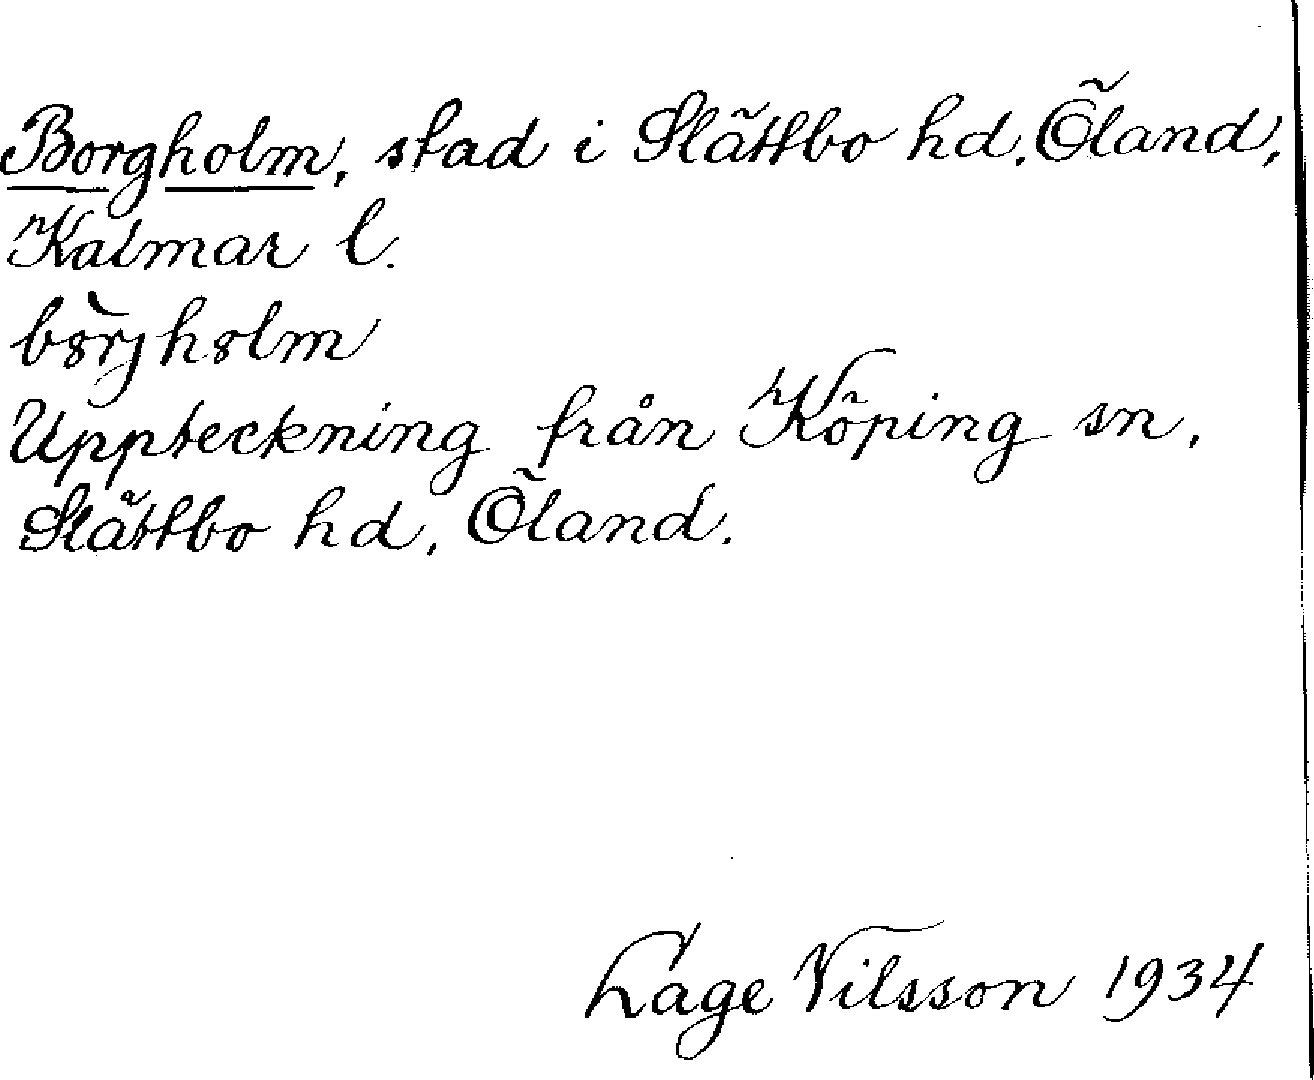 Borgholm, stad i Slättbo hd. Öland,
Kalmar l.
Uppteckning från Köping sn,
Slättbo hd, Öland.
Lage Nilsson 1934